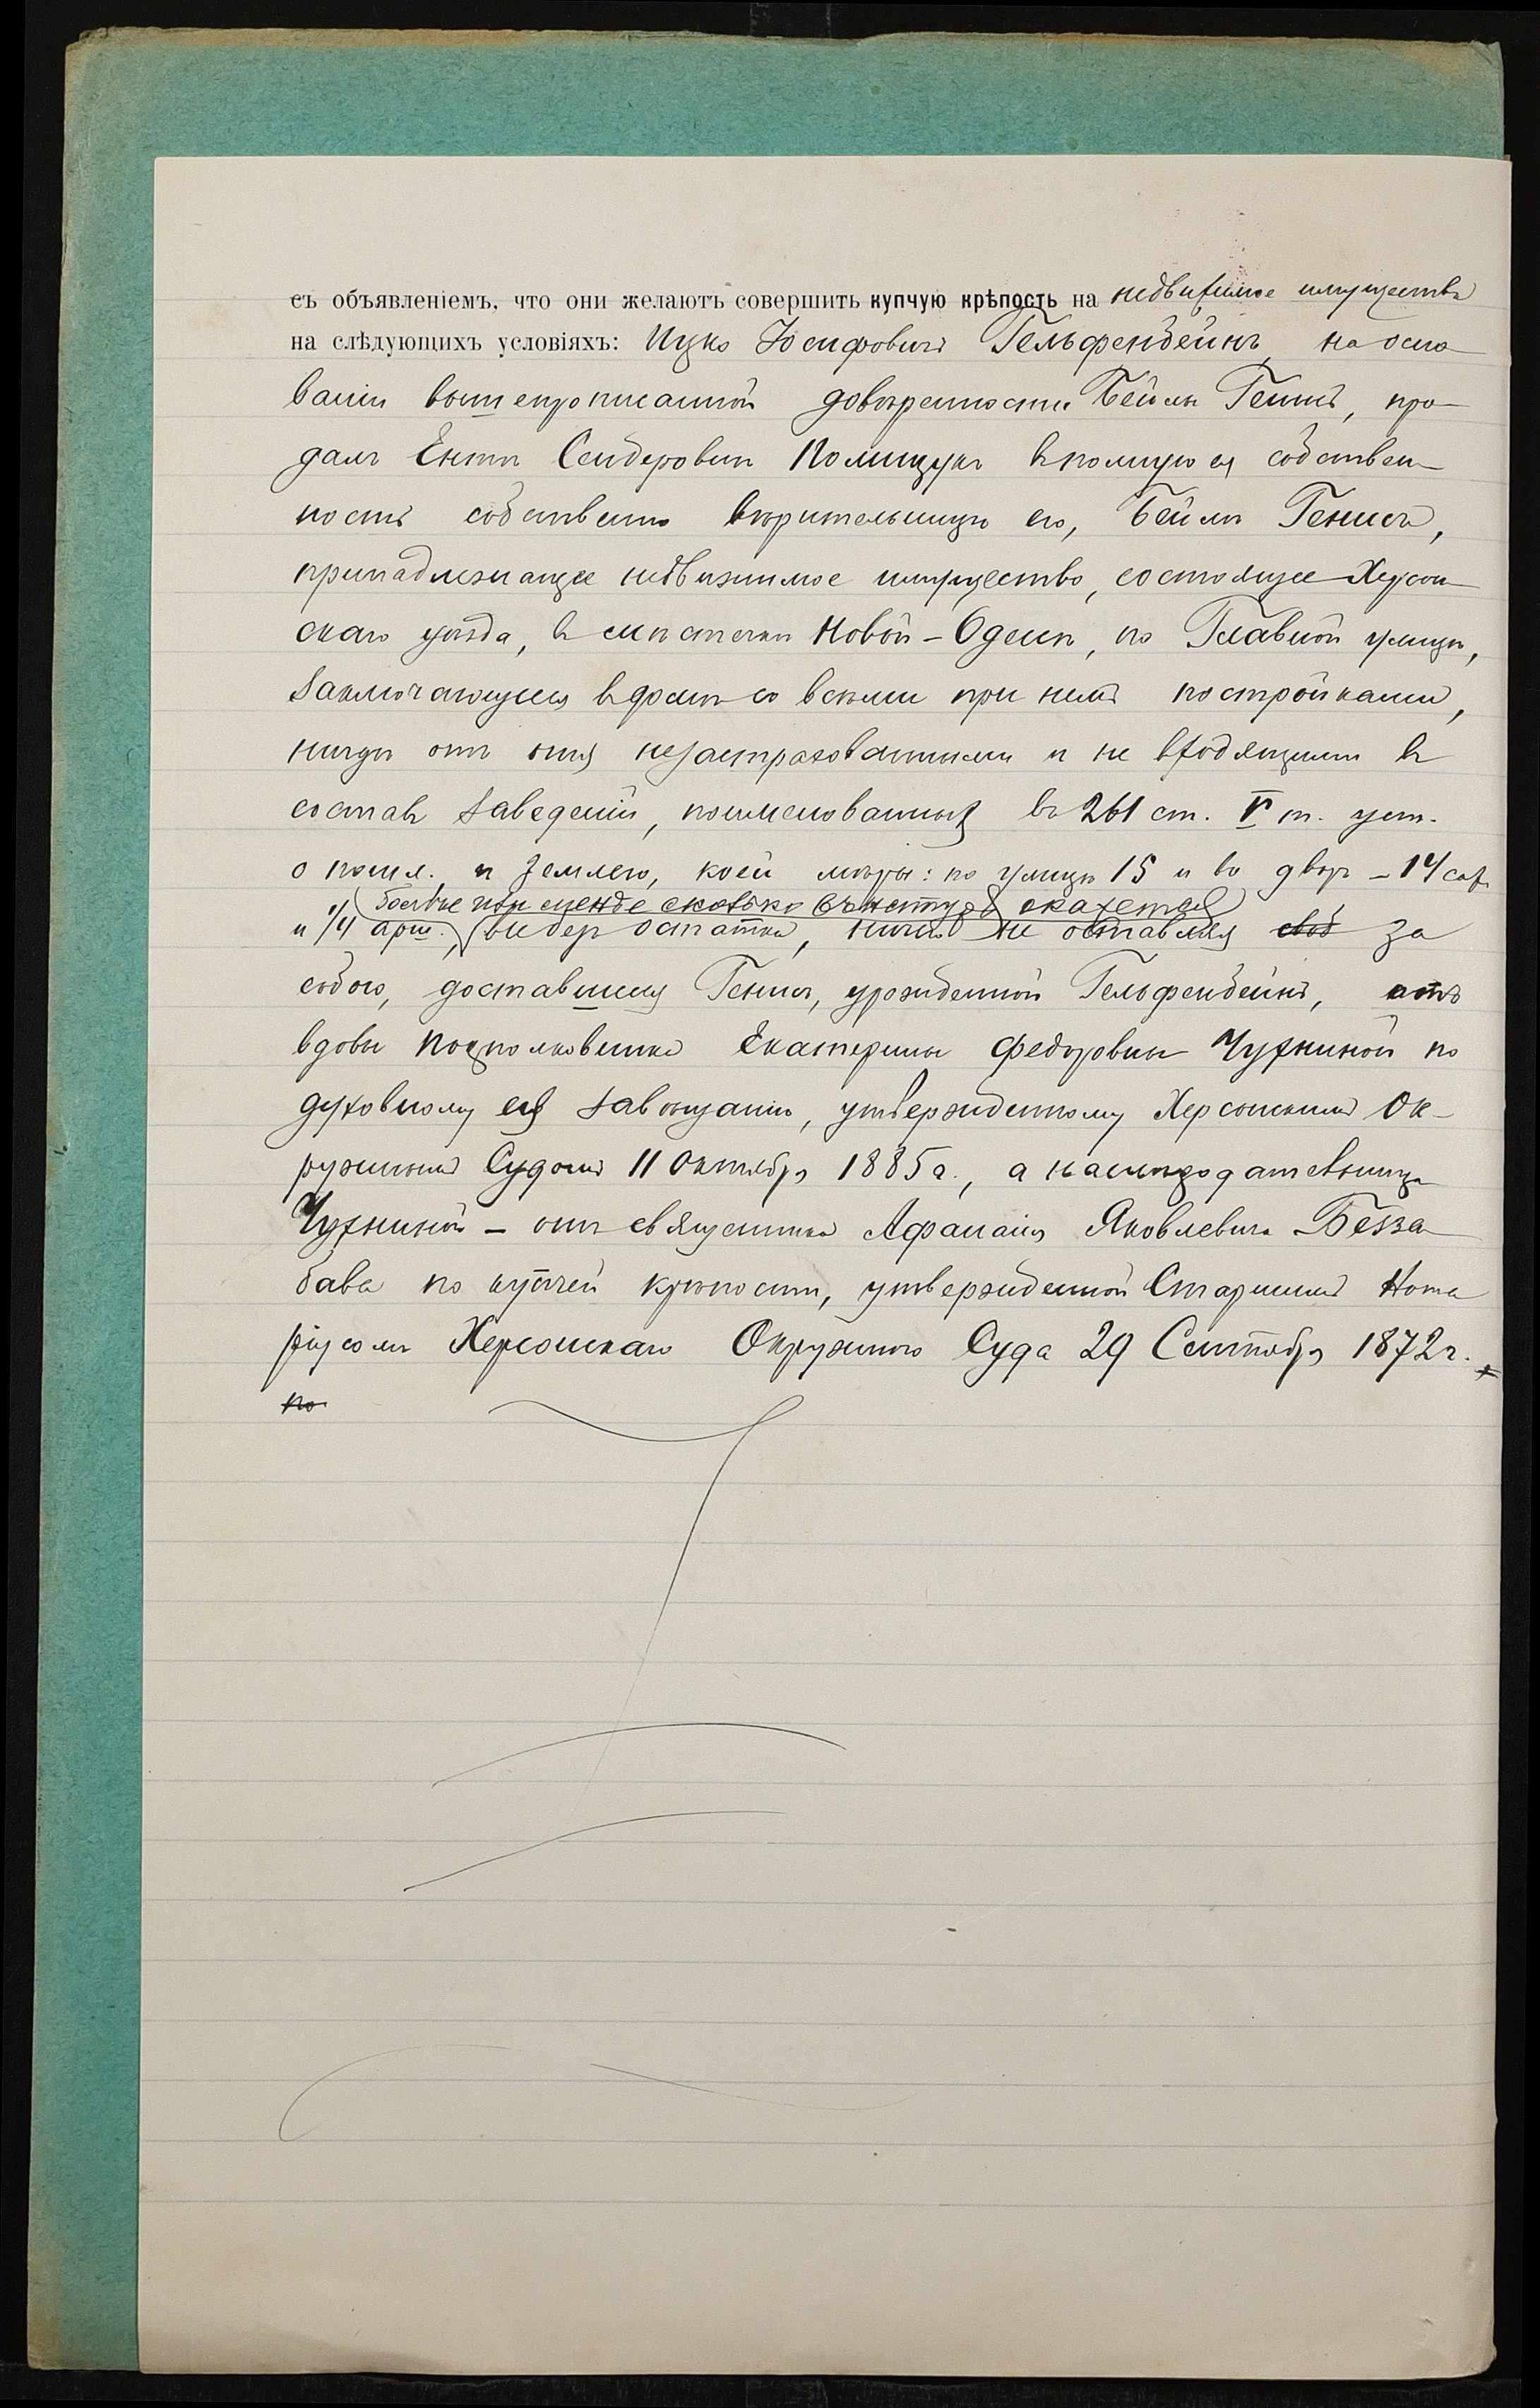 съ объявленіемъ, что они желаютъ совершить купчую крѣпость на недвижимое имущество
на слѣдующихъ условіяхъ: Ицко Іосифовичъ Гельфендейнъ, на осно
ваніи вышепрописанной довѣренности Бейлы Генисъ, про-
далъ Ентѣ Сендеровнѣ Полищукъ въ полную ея собствен-
ность собственно вѣрительницѣ его, Бейлѣ Генисъ,
принадлежащее недвижимое имущество, состоящее Херсон-
скаго уѣзда, въ мѣстечкѣ Новой-Одессѣ, по Главной улицѣ,
заключающееся въ домѣ со всѣми при немъ постройками,
нигдѣ отъ огня незастрахованными и не входящими въ
составъ заведеній, поименованныхъ въ 261 ст. V т. уст.
о пошл. и землею, коей мѣры: по улицѣ 15 и во дворъ – 14 саж.
болѣе или менѣе сколько въ натурѣ окажется
и 1/4 арш., безъ остатка, ничего не оставляя своб за
собою, доставшееся Генисъ, урожденной Гельфендейнъ, отъ
вдовы подполковника Екатерины Федоровны Чухниной по
духовному ея завѣщанію, утвержденному Херсонскимъ Ок-
ружнымъ Судомъ 11 Октября 1885 г., а наслѣдодательницѣ
Чухниной – отъ священника Афанасія Яковлевича Безза
бава по купчей крѣпости, утвержденной Старшимъ Нота
ріусомъ Херсонскаго Окружного Суда 29 Сентября 1872 г.
по